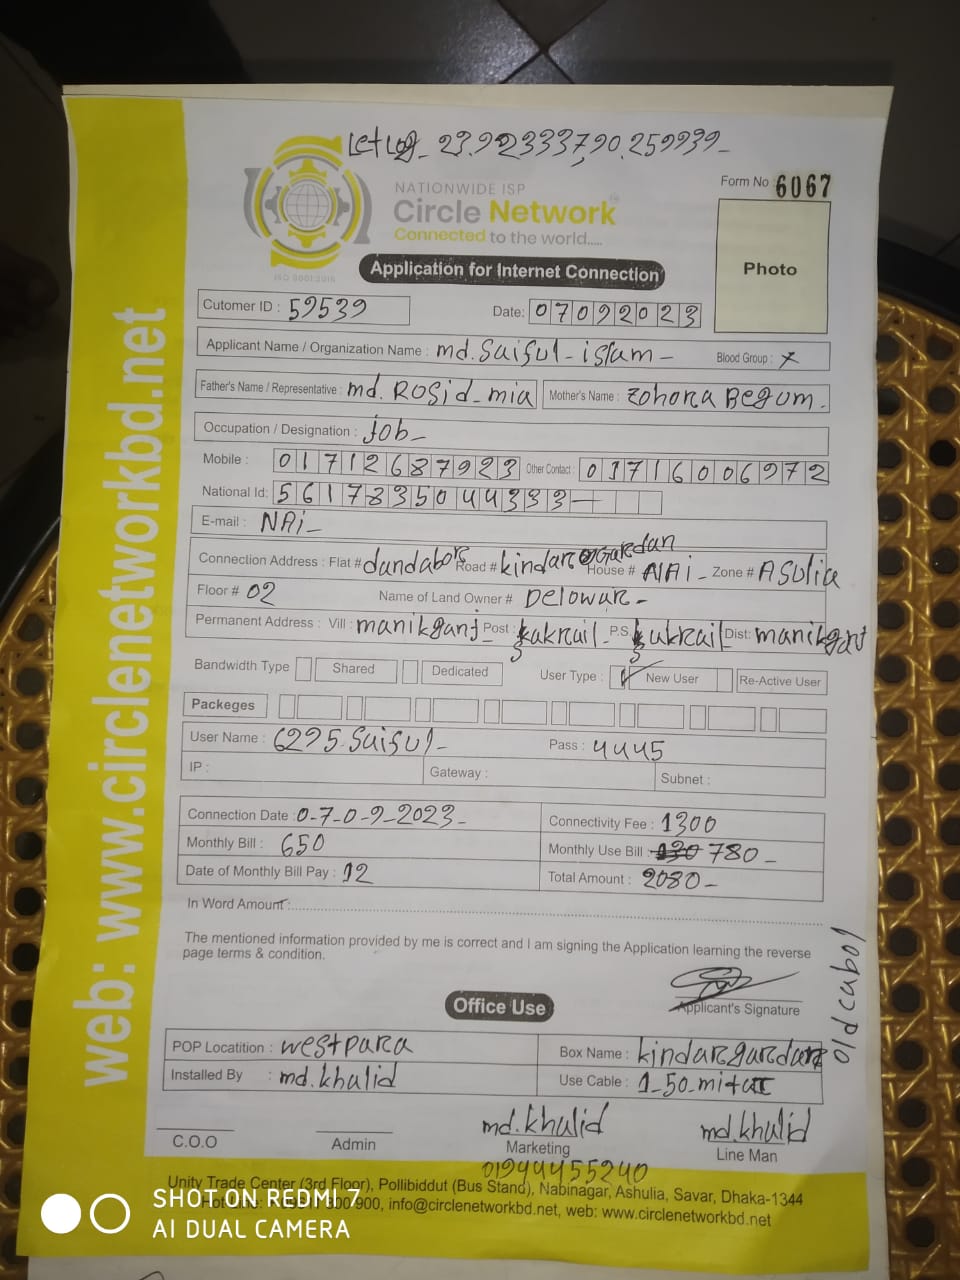 Let Log_ 23.923337,90.259939_
Form No 6067
NATIONWIDE ISP
Circle Network
Connected to the world.....
ISO 9001:2015
Photo
Application for Internet Connection
Cutomer ID : 59539
Date: 07092023
Applicant Name / Organization Name : md. Saiful - islam - Blood Group : x
Father's Name / Representative : md. Rosid_mia Mother's Name : Zohora Begum.
Occupation / Designation : Job_
Mobile : 01712687923 Other Contact : 01716006972
National Id: 5617835044333
E-mail : NAi_
Connection Address : Flat # dandabor Road # kindar Gardan House # NAi - Zone # ASulia
Floor # 02 Name of Land Owner # Delowar -
Permanent Address : Vill : manikganj Post : P.S. Dist: manikganj
Bandwidth Type Shared Dedicated User Type : New User Re-Active User
Packeges
User Name : 6295.Saiful_ Pass : 4445
IP : Gateway : Subnet :
Connection Date : 0-7-0-9-2023_ Connectivity Fee : 1300
Monthly Bill : 650 Monthly Use Bill : 780 -
Date of Monthly Bill Pay : 12 Total Amount : 2080 -
In Word Amount:
The mentioned information provided by me is correct and I am signing the Application learning the reverse
page terms & condition.
Applicant's Signature
Office Use
POP Locatition : westpara Box Name : kindargardan
Installed By : md.khalid Use Cable : 1_50_mitar
C.O.O Admin md.khalid Marketing md.khalid Line Man
01944455240
Unity Trade Center (3rd Floor), Pollibiddut (Bus Stand), Nabinagar, Ashulia, Savar, Dhaka-1344
900, info@circlenetworkbd.net, web: www.circlenetworkbd.net
web: www.circlenetworkbd.net
SHOT ON REDMI 7
AI DUAL CAMERA